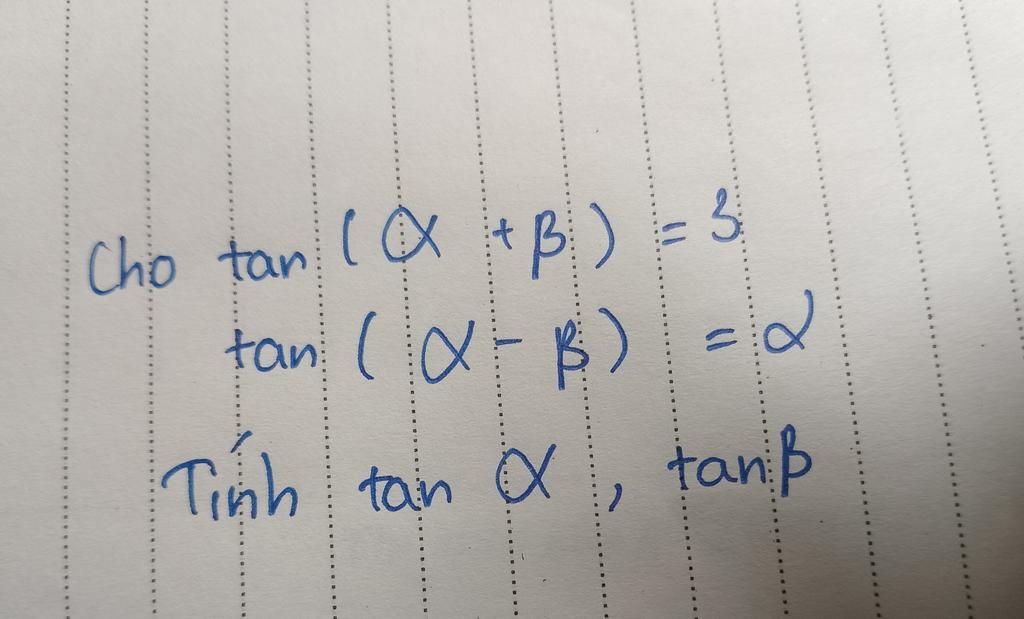 Cho tan (α + β) = 3
tan (α - β) = α
Tính tan α, tanβ